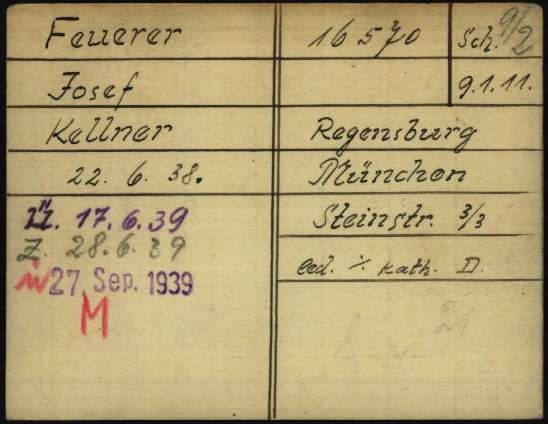 Feuerer
16570
Sch.
9/2
Josef
9.1.11.
Kellner
Regensburg
22. 6. 38.
München
17.6.39
Steinstr. 3/3
Z. 28.6.39
led. ./. Kath. D.
27. Sep. 1939
M